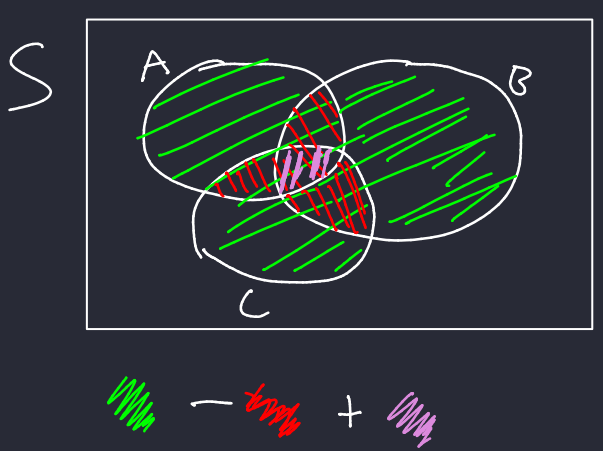 S
A
B
C
- +